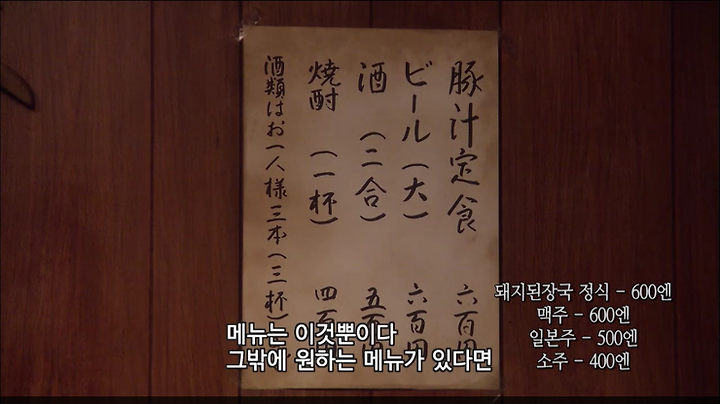 豚汁定食 六百円
ビール(大) 六百円
酒 (二合) 五百
焼酎 (一杯) 四百
酒類はお一人様三本(三杯)
돼지된장국 정식 - 600엔
맥주 - 600엔
일본주 - 500엔
소주 - 400엔
메뉴는 이것뿐이다
그밖에 원하는 메뉴가 있다면